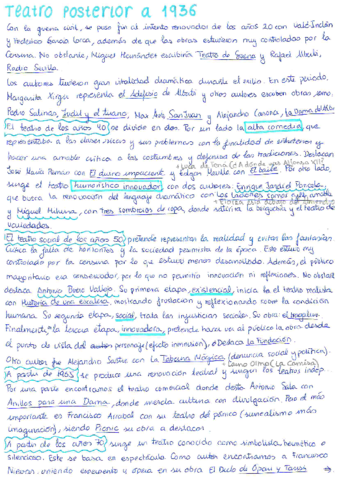 Teatro posterior a 1936
Con la guerra civil, se puso fin al intento renovador de los años 20 con Valle-Inclán
y Federico García Lorca, además de que las obras estuvieron muy controladas por la
censura. No obstante, Miguel Hernández escribiría Teatro de Guerra y Rafael Alberti,
Radio Sevilla.
Los autores tuvieron gran vitalidad dramática durante el exilio. En este periodo,
Margarita Xirgu representa el Adefesio de Alberti y otros autores escriben obras como:
Pedro Salinas, Judit y el tirano, Max Aub, San Juan y Alejandro Casona, La Dama del Alba
El teatro de los años 40 se divide en dos. Por un lado la alta comedia, que
representaba a las clases y sus problemas con la finalidad de entretener y
hacer una amable crítica a las costumbres y defensa de las tradiciones. Destacan
José María Pemán con El divino impaciente y Edgar Neville con El baile. Por otro lado,
surge el teatro humorístico innovador, con dos autores: Enrique Jardiel Poncela,
que busca la renovación del lenguaje dramático con
y Miguel Mihura, con Tres sombreros de copa, donde satiriza la burguesía y el teatro de
variedades.
El teatro social de los años 50 pretende representar la realidad y critican
la de y la sociedad pesimista de la época. Este estuvo
controlado por la censura por lo que estuvo menos desarrollado. Además, el público
mayoritario era conservador, por lo que no permitía innovación ni reflexiones. No obstante
destaca Antonio Buero Vallejo. Su primera etapa, existencial, inicia la el teatro realista
con Historia de una escalera, mostrando frustración y reflexionando sobre la condición
humana. Su segunda etapa, social, trata las injusticias sociales. Su obra el tragaluz.
Finalmente, la tercera etapa, innovadora, pretende hacer ver al público la obra desde
el punto de vista del personaje (efecto inmersión), destaca La Fundación
Otro autor fue Alejandro Sastre con La Taberna Mágica (denuncia social y política).
A partir de 1955 se produce una renovación teatral y surgen los teatros indep.
Por una parte encontramos el teatro comercial donde destaca Antonio Gala con
Anillos para una Dama, donde mezcla cultura con divulgación. Pero el más
importante es Francisco Arrabal con su teatro del pánico (surrealismo más
imaginación), siendo Picnic su obra a destacar.
A partir de los años 70 surge un teatro conocido como simbolista, hermético o
silencioso. Este se basa en espectáculo. Como autor encontramos a Francisco
Nieva, uniendo esperpento y ópera en su obra El